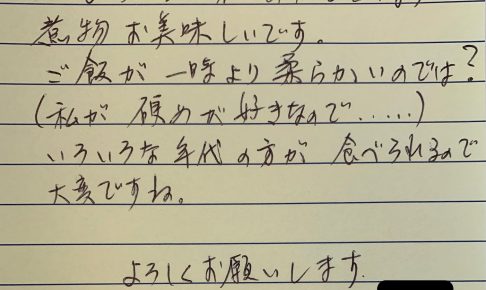 煮物 お美味しいです。
ご飯が 一時より 柔らかいのでは?
(私が 硬めが 好きなので……)
いろいろな 年代の方が 食べられるので
大変ですね。
よろしくお願いします